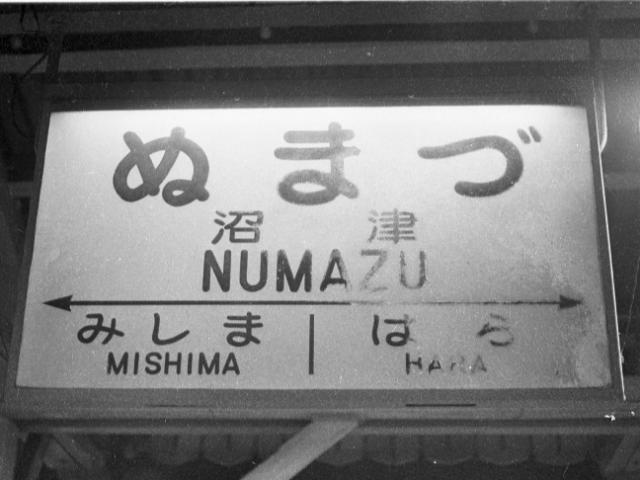 ぬまづ
沼津
NUMAZU
みしま はら
MISHIMA HARA